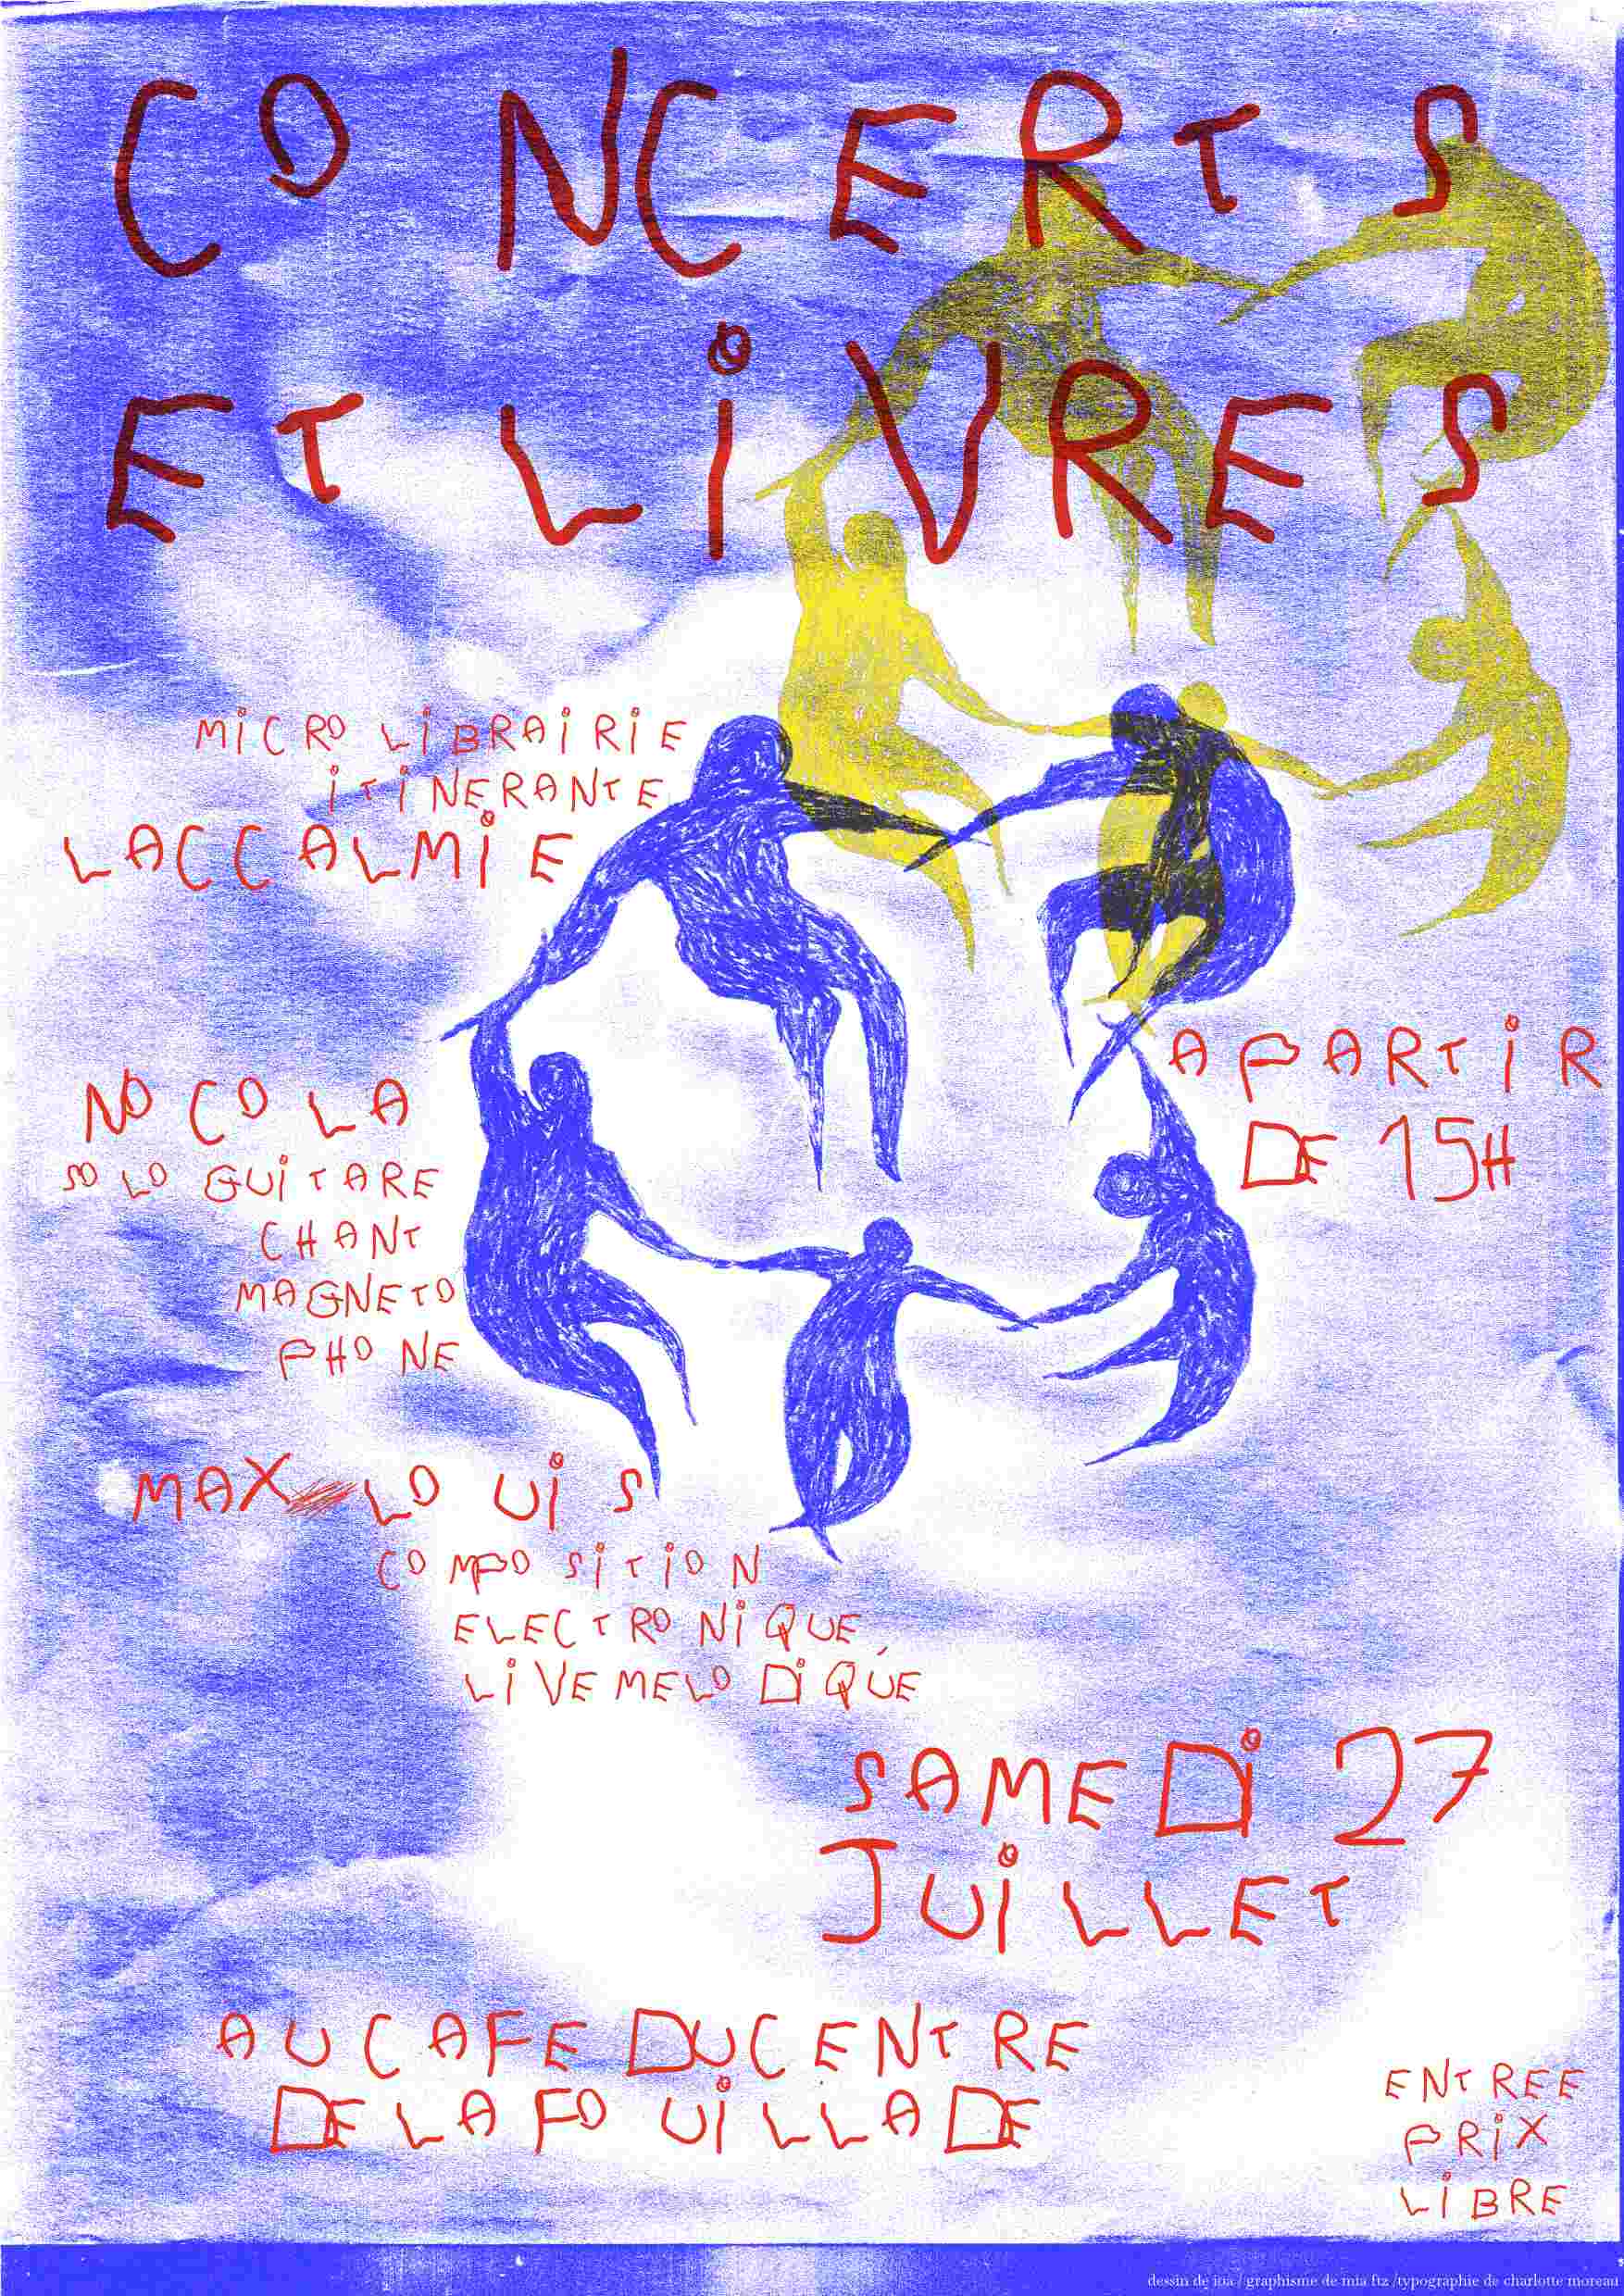 CONCERTS
ET LiVRES
MiCRO LiBRAiRiE
iTiNERANTE
LACCALMiE
NOCOLA
SOLO GUiTARE
CHANT
MAGNETO
PHONE
A PARTiR
DE 15H
MAX LOUiS
COMPOSiTiON
ELECTRONiQUE,
LiVE MELODiQUE
SAMEDi 27
JUiLLET
AU CAFE DU CENTRE
DE LAFOUiLLADE
ENTREE
PRiX
LiBRE
dessin de ioa / graphisme de mia ftz /typographie de charlotte moreau